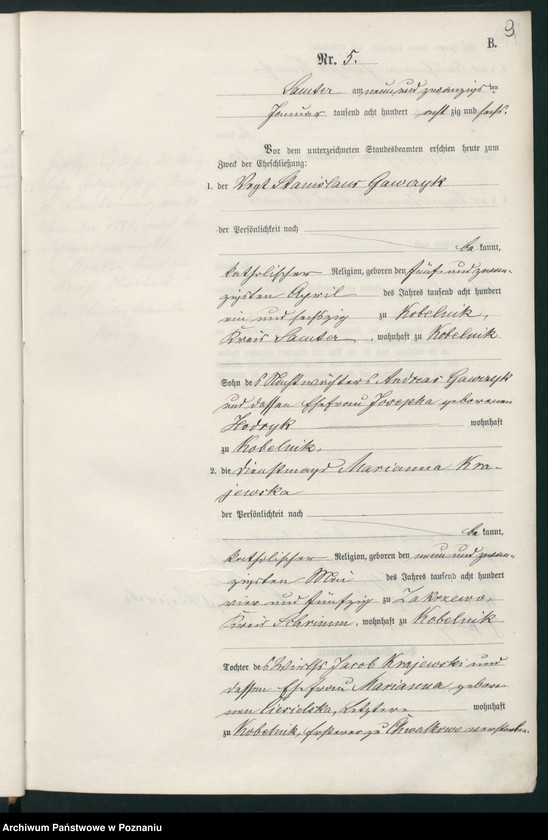 9
B.
Nr. 5.
Samter am neun und zwanzigsten
Januar tausend acht hundert acht zig und sechs.
Vor dem unterzeichneten Standesbeamten erschien heute zum
Zweck der Eheschließung:
1. der Vogt Stanislaus Gawczyk
der Persönlichkeit nach
be kannt,
katholischer Religion, geboren den fünf und zwan-
zigsten April des Jahres tausend acht hundert
ein und sechszig zu Kobelnik,
Kreis Samter, wohnhaft zu Kobelnik
Sohn des Nachtwächters Andreas Gawczyk
und dessen Ehefrau Josepha geborenen
wohnhaft
zu Kobelnik.
2. die Dienstmagd Marianna Kra-
jewska
der Persönlichkeit nach
be kannt,
katholischer Religion, geboren den neun und zwan-
zigsten Mai des Jahres tausend acht hundert
vier und fünfzig zu Zakrzewo,
Kreis Schrimm, wohnhaft zu Kobelnik
Tochter des Wirths Jacob Krajewski und
dessen Ehefrau Marianna, gebore-
nen Cierielska, Letztere wohnhaft
zu Kobelnik, Ersterer zu Chwalkowo verstorben.
Archiwum Państwowe w Poznaniu